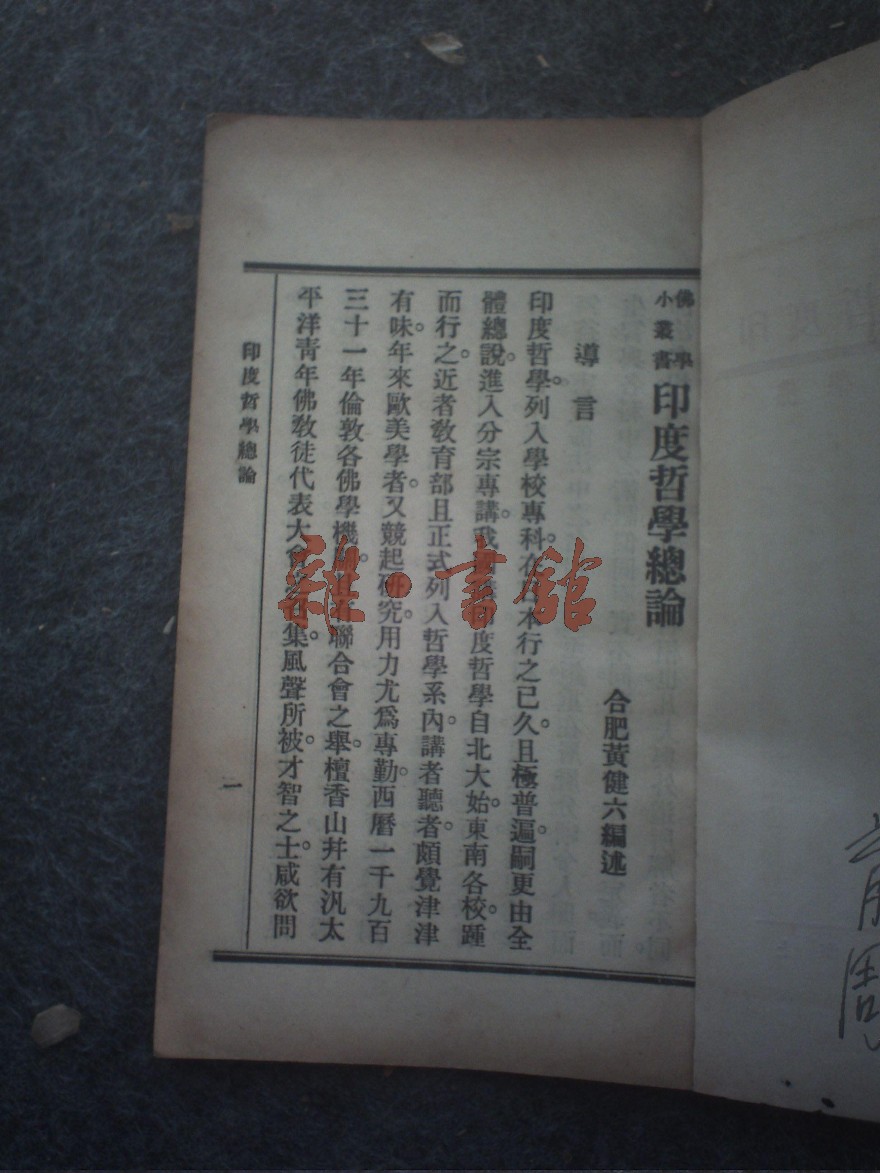 佛學小叢書 印度哲學總論
合肥黃健六編述
導言
印度哲學。列入學校專科。在日本行之已久。且極普遍。嗣更由全
體總說。進入分宗專講。我國講印度哲學。自北大始。東南各校。踵
而行之。近者教育部且正式列入哲學系內。講者聽者。頗覺津津
有味。年來歐美學者。又競起研究。用力尤爲專勤。西曆一千九百
三十一年倫敦各佛學機 聯合會之舉。檀香山幷有汎太
平洋靑年佛敎徒代表大會 集。風聲所被。才智之士。咸欲問
印度哲學總論
一
雜·書館